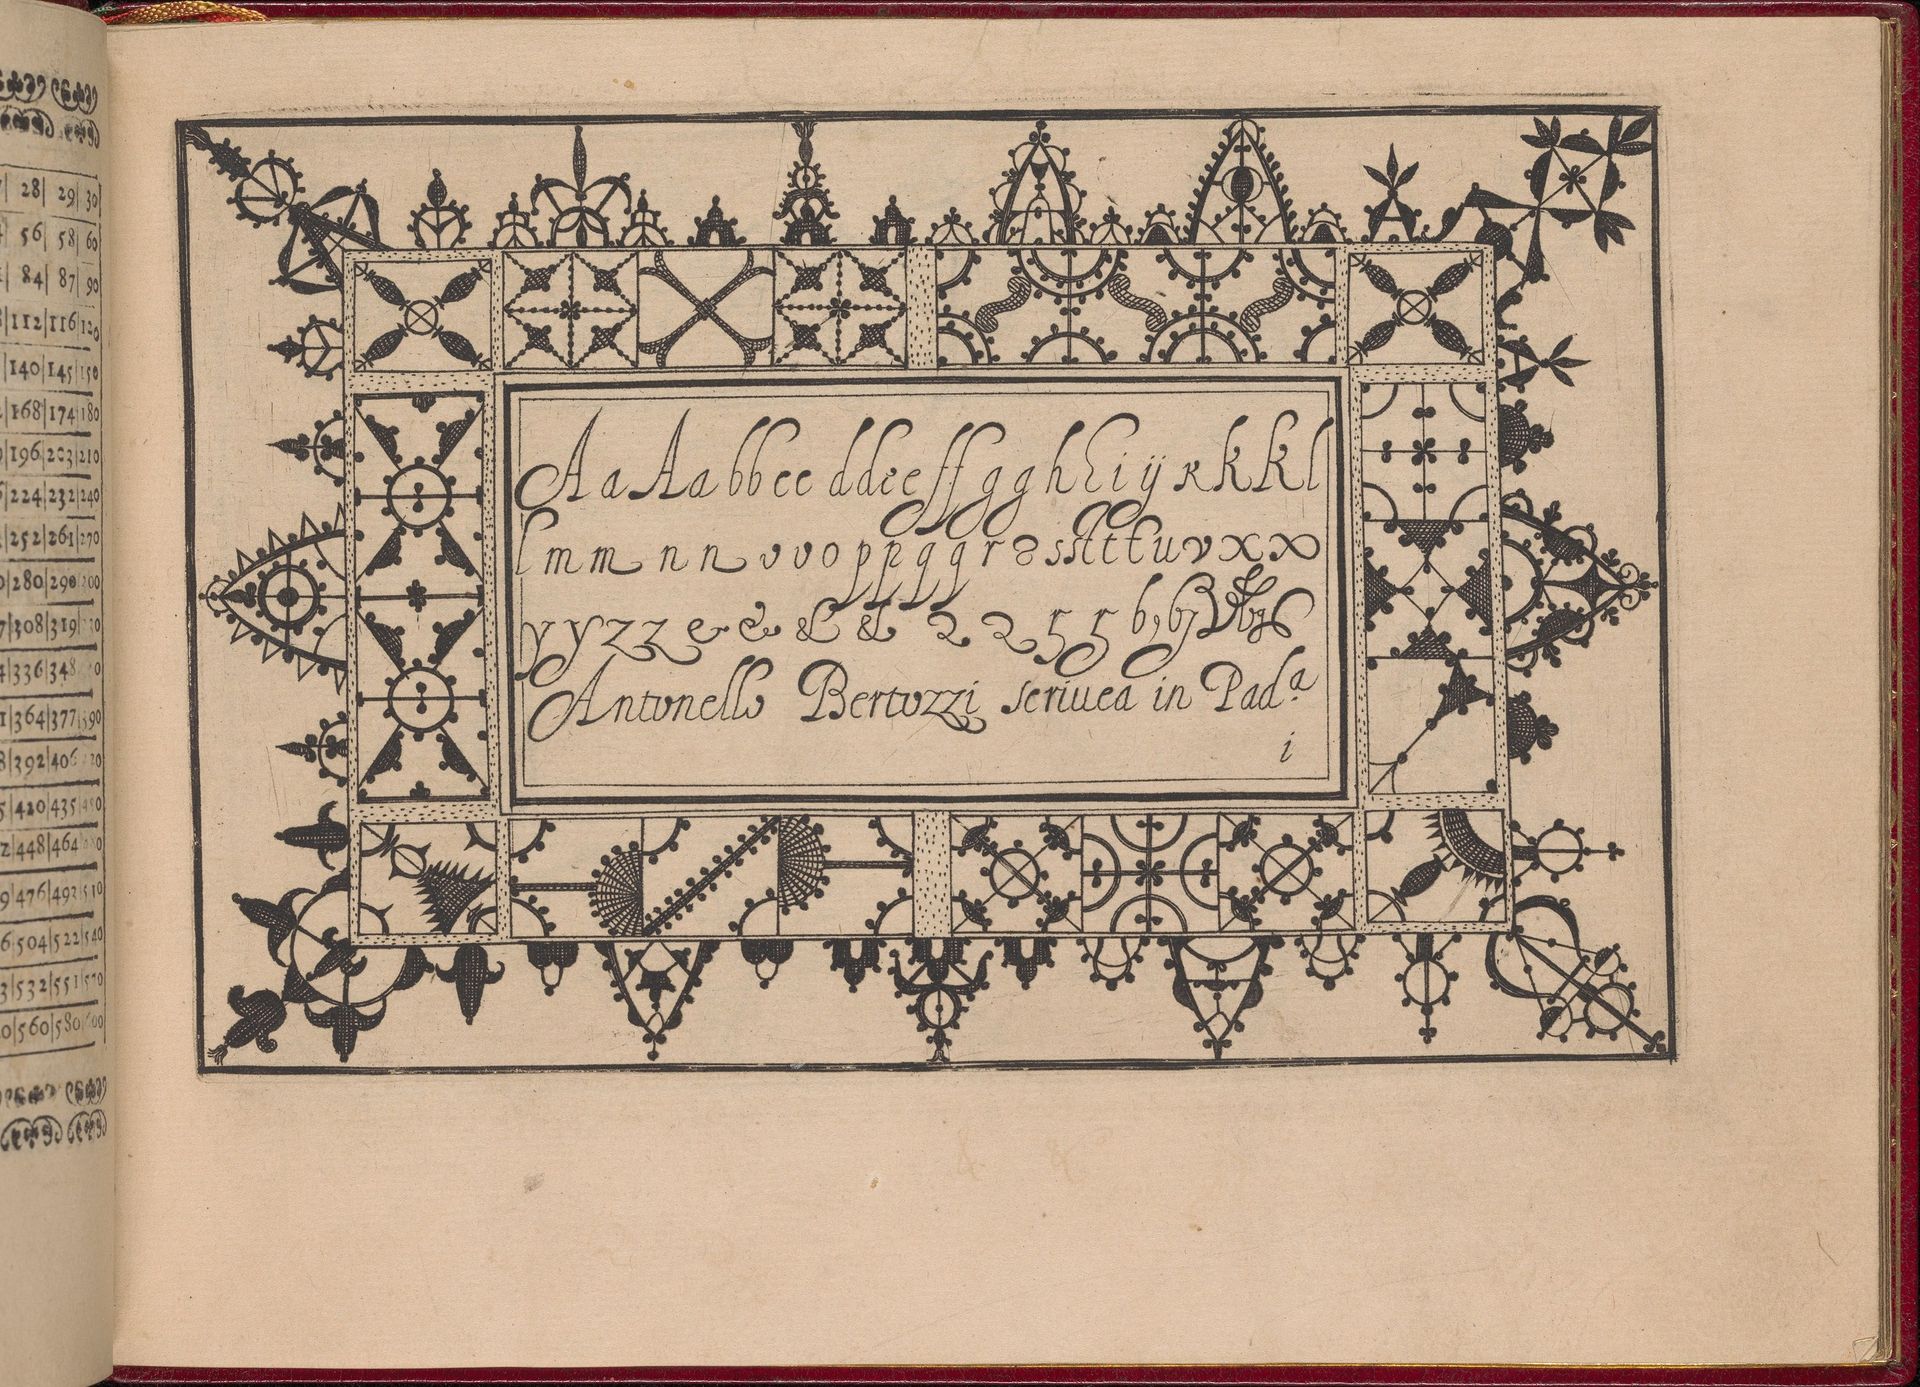 28 29 30
56 58 60
84 87 90
112 116 120
140 145 150
168 174 180
196 203 210
224 232 240
252 261 270
280 290 300
308 319
336 348
364 377 390
392 406
420 435
448 464
476 493 510
504 522 540
532 551 570
560 580 600
A a A a b b c c d d e e f f g g h h i ij k k k l
l m m n n o v o p p q q r 2 s s st t t u v x x
y y z z & & & & 2 2 5 5
Antonello Bertozzi scriuea in Pad.a
i